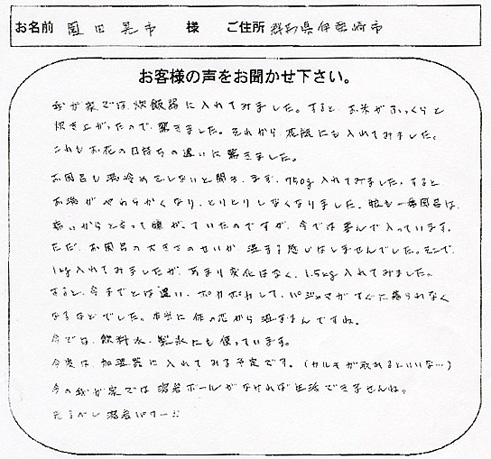 お名前 園田晃市 様 ご住所 群馬県伊勢崎市
お客様の声をお聞かせ下さい。
我が家では、炊飯器に入れてみました。すると、お米がふっくらと
炊き上がったので、驚きました。それから、花瓶にも入れてみました。
これもお花の日持ちの違いに驚きました。
お風呂も湯冷めをしないと聞き、まず、750g入れてみました。すると
お湯がやわらかくなり、とりとりしなくなりました。娘も一番風呂は、
痛いからと言って嫌がっていたのですが、今では喜んで入っています。
ただ、お風呂の大きさのせいか 温まる感じはしませんでした。そこで、
1kg入れてみましたが、あまり変化はなく、1.5kg入れてみました。
すると、今までとは違い、ポカポカして、パジャマがすぐに着られなく
なるほどでした。本当に体の芯から温まるんですね。
今では、飲料水、製氷にも使っています。
今度は、加湿器に入れてみる予定です。(カルキが取れるといいな…)
今の我が家では 溶岩ボールがなければ生活できませんね。
恐るべし 溶岩パワー!!